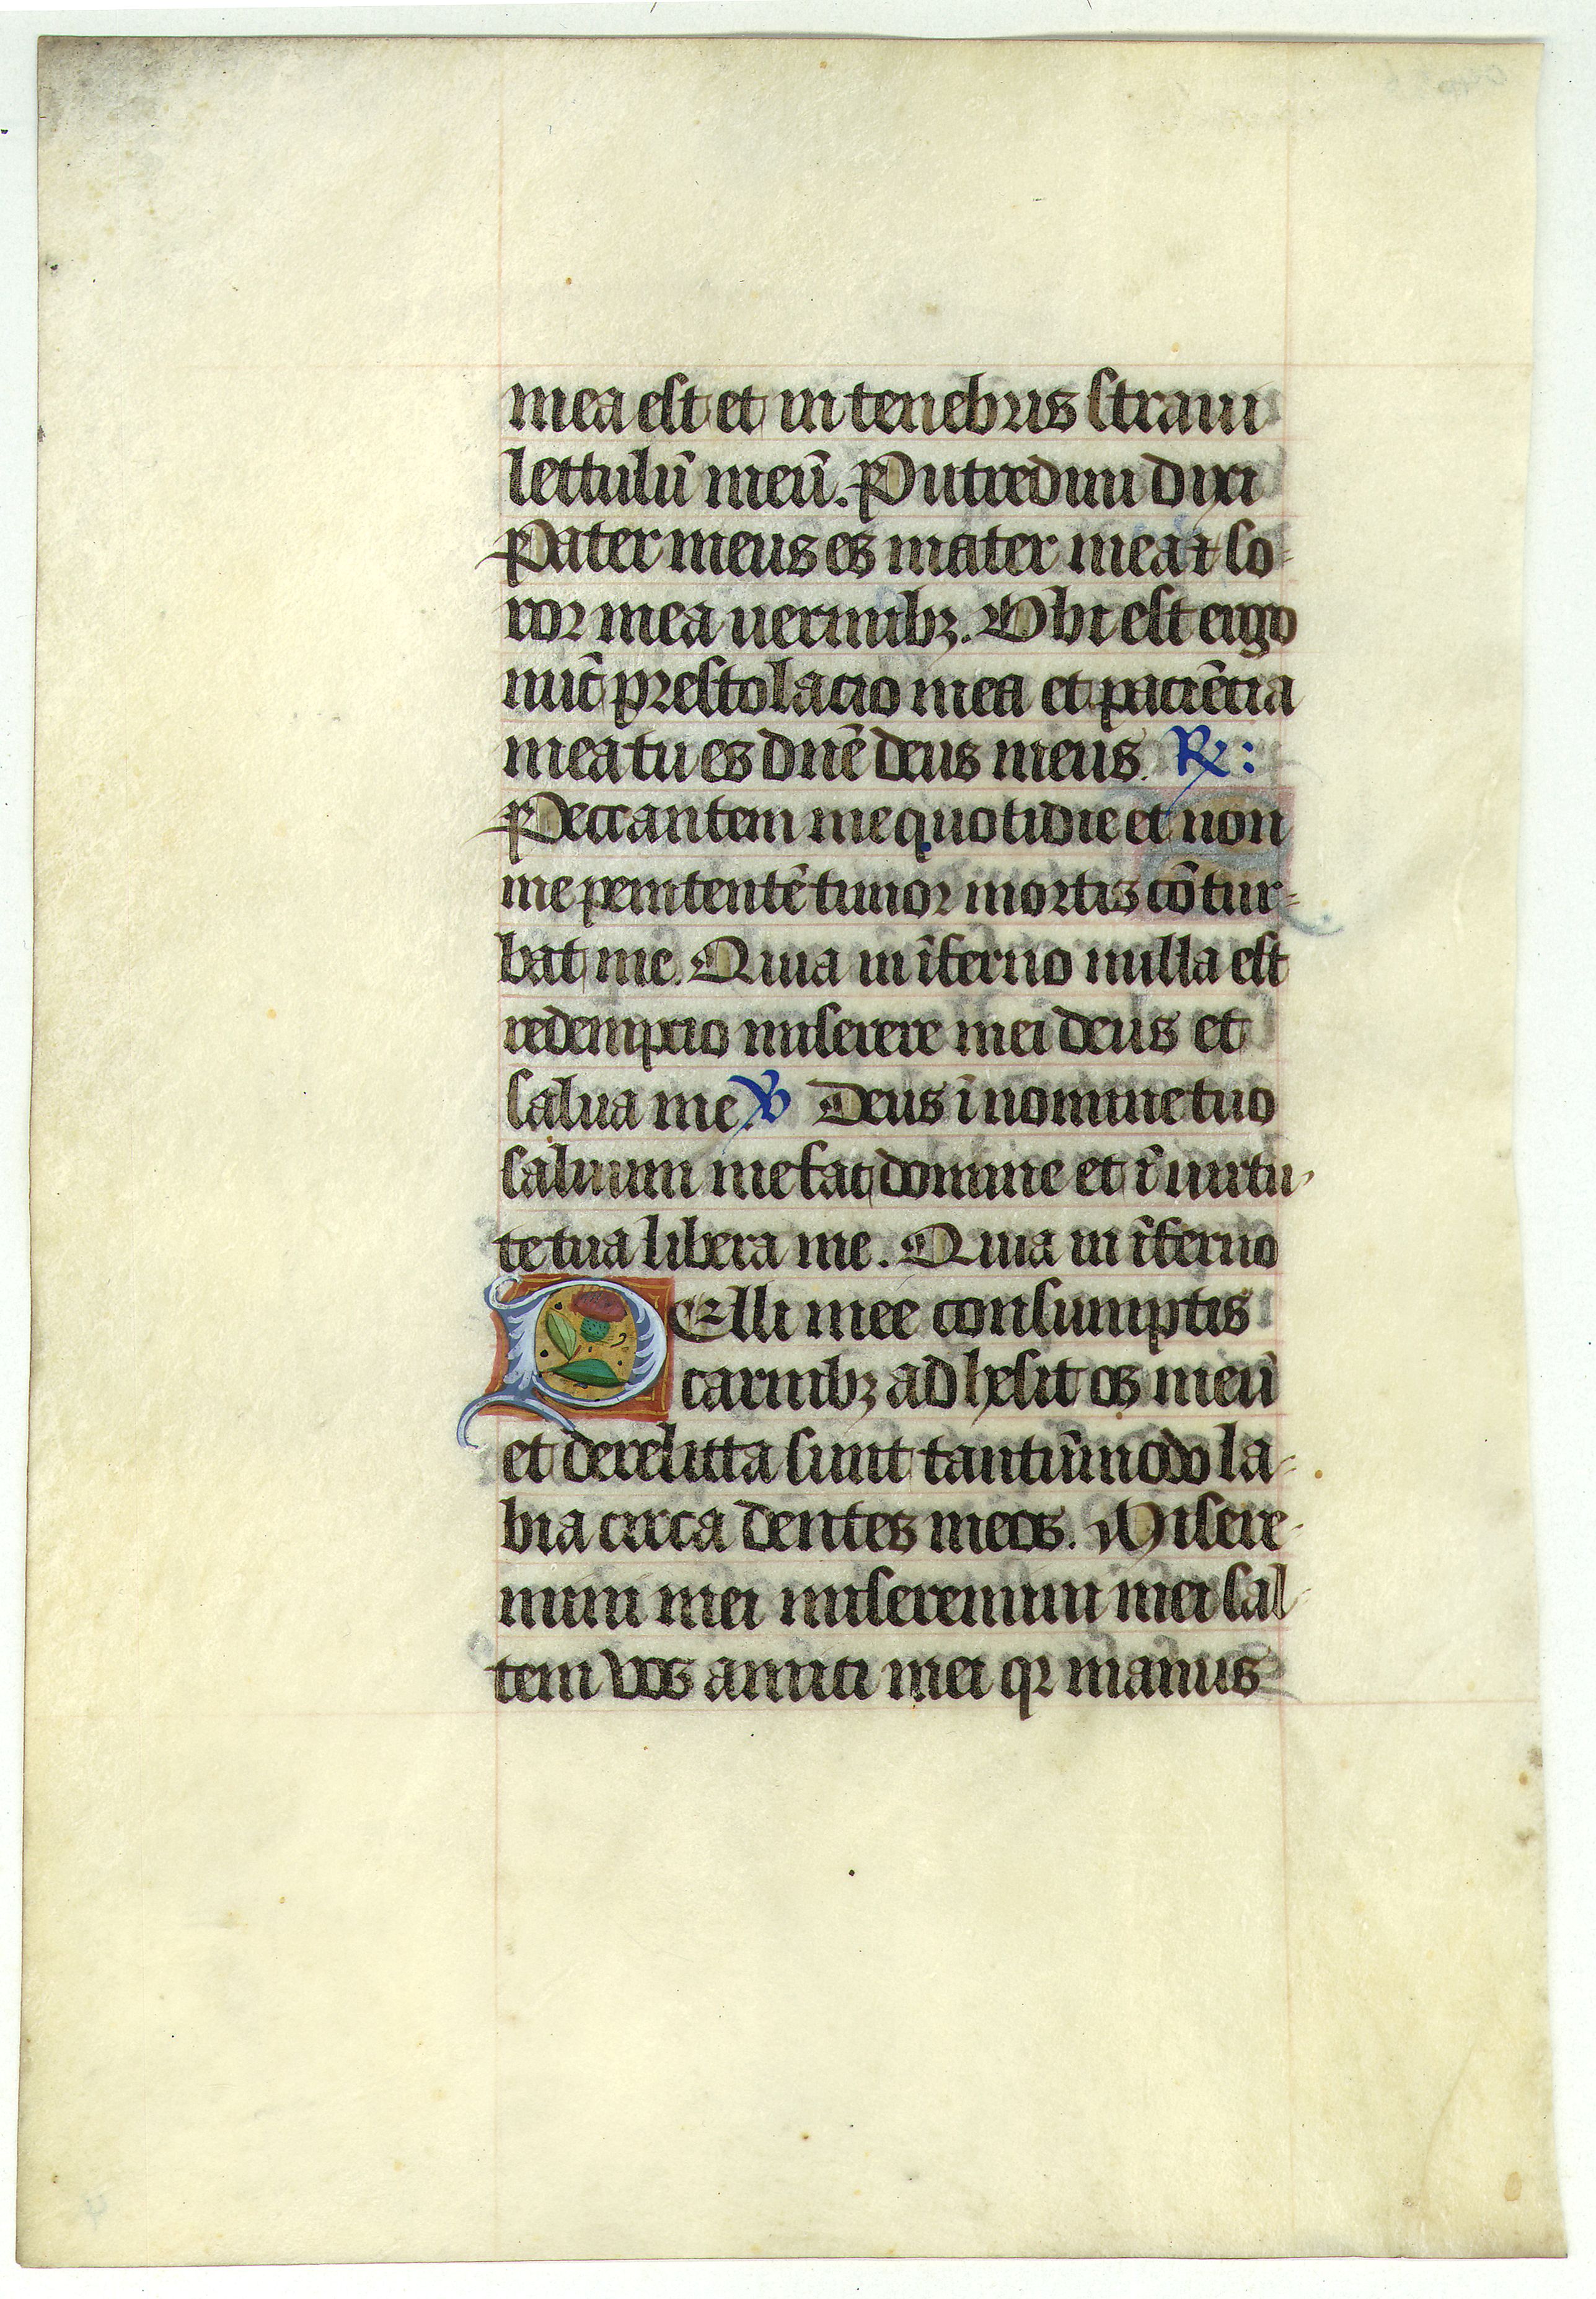 mea est et in tenebris straui
lectulū meū. Putredini dixi
Pater meus es mater mea ⁊ so-
ror mea uermibꝫ. Vbi est ergo
nūc prestolacio mea et paciēcia
mea tu es dnē deus meus. ℟:
Peccantem me quotidie et non
me penitentē timor mortis cōtur-
bat me. Quia in īferno nulla est
redempcio miserere mei deus et
salua me. ℣ Deus ī nomine tuo
saluum me fac domine et ī uirtu-
te tua libera me. Quia in īferno
PElli mee consumptis
carnibꝫ adhesit os meū
et derelicta sunt tantūmodo la-
bia circa dentes meos. Misere-
mini mei miseremini mei sal-
tem vos amici mei qr manus